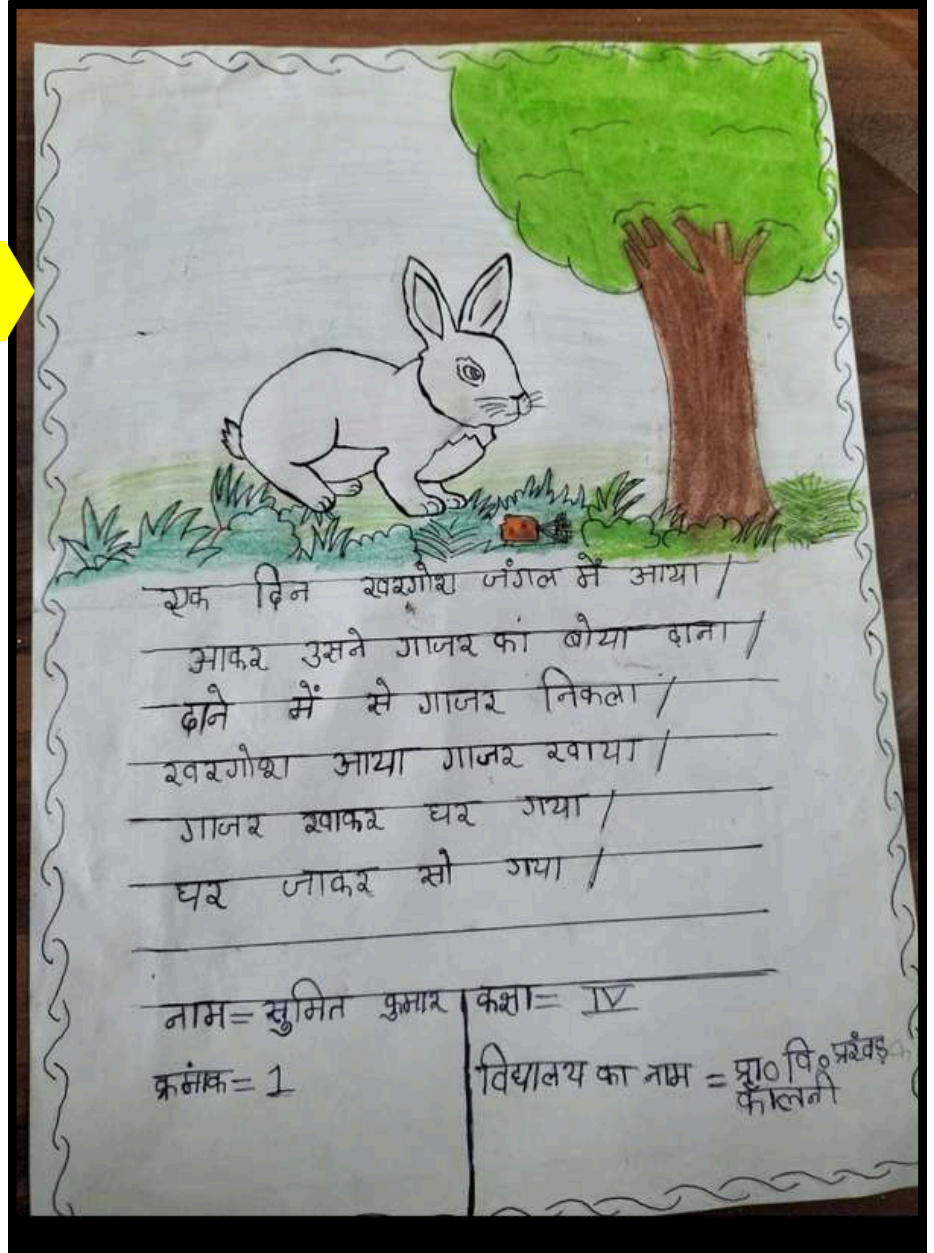 एक दिन खरगोश जंगल में आया /
आकर उसने गाजर कां बोया दाना /
दाने में से गाजर निकला /
खरगोश आया गाजर खाया /
गाजर खाकर घर गया /
घर जाकर सो गया /
नाम = सुमित कुमार
कक्षा = IV
क्रमांक = 1
विद्यालय का नाम = प्रा० वि० प्रखंड
कॉलनी